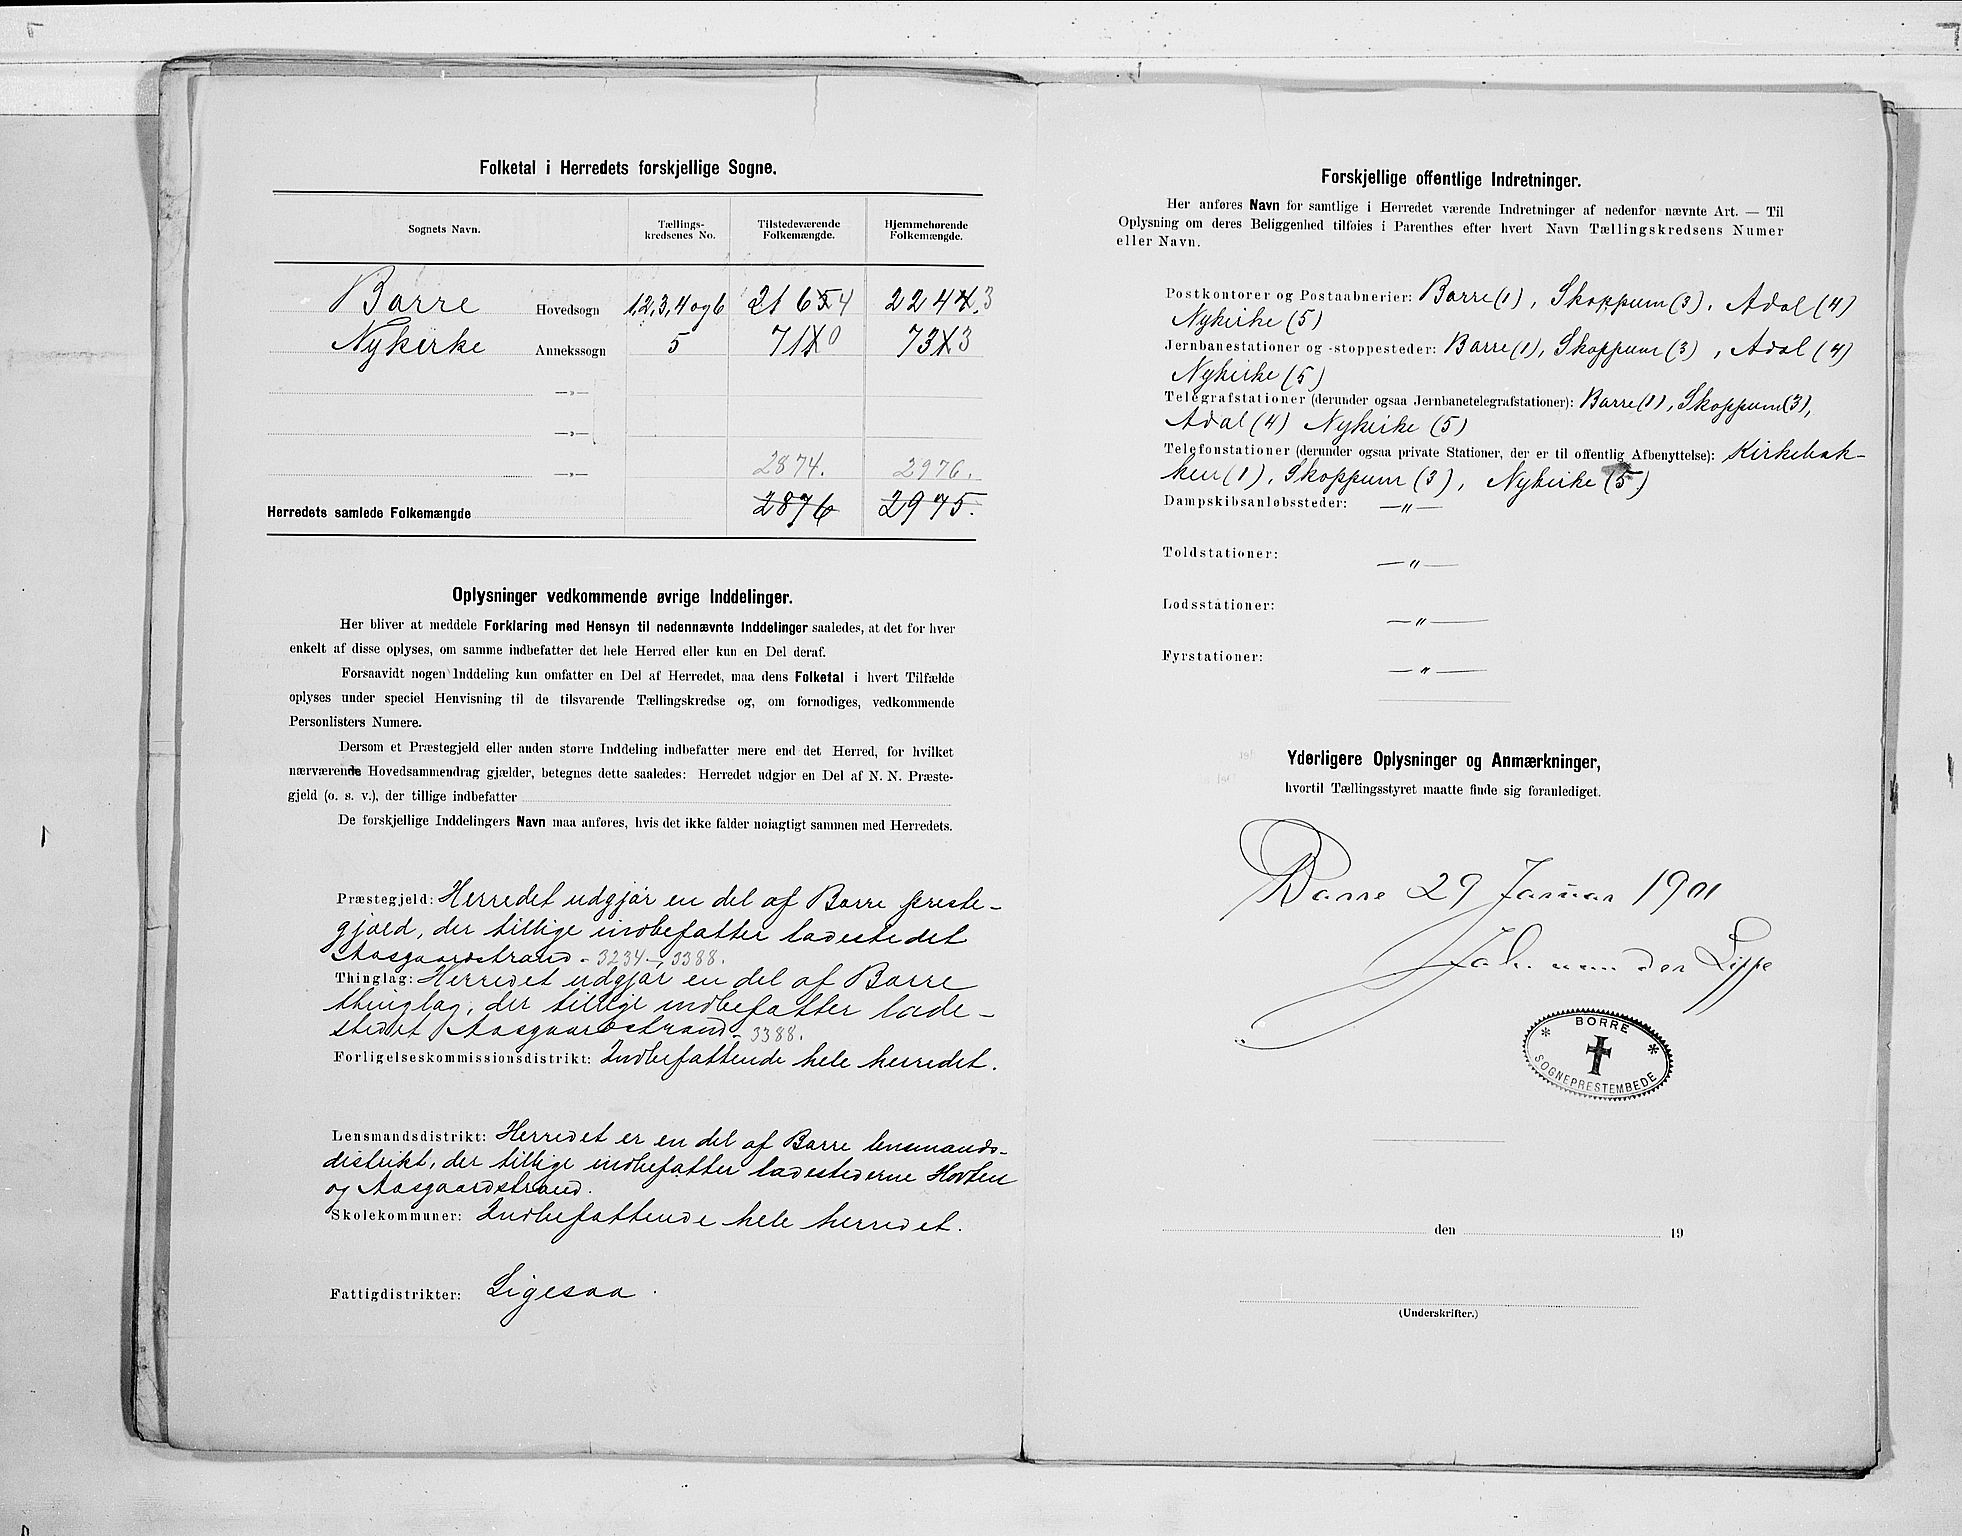 Folketal i Herredets forskjellige Sogne.
Sognets Navn. Tællings-kredsenes No. Tilstedeværende Folkemængde. Hjemmehørende Folkemængde.
Borre Hovedsogn 1,2,3,4 og 6 2165 4 2244 3
Nykirke Annekssogn 5 711 0 732 3
—„—
—„—
—„— 2874. 2976.
Herredets samlede Folkemængde 2876 2975.
Oplysninger vedkommende øvrige Inddelinger.
Her bliver at meddele Forklaring med Hensyn til nedennævnte Inddelinger saaledes, at det for hver
enkelt af disse oplyses, om samme indbefatter det hele Herred eller kun en Del deraf.
Forsaavidt nogen Inddeling kun omfatter en Del af Herredet, maa dens Folketal i hvert Tilfælde
oplyses under speciel Henvisning til de tilsvarende Tællingskredse og, om fornødiges, vedkommende
Personlisters Numere.
Dersom et Præstegjeld eller anden større Inddeling indbefatter mere end det Herred, for hvilket
nærværende Hovedsammendrag gjælder, betegnes dette saaledes: Herredet udgjør en Del af N. N. Præste-
gjeld (o. s. v.), der tillige indbefatter
De forskjellige Inddelingers Navn maa anføres, hvis det ikke falder nøiagtigt sammen med Herredets.
Præstegjeld: Herredet udgjør en del af Borre preste-
gjæld, der tillige indbefatter ladestedet
Aasgaardstrand - 3234 - 3388.
Thinglag: Herredet udgjør en del af Borre
thinglag, der tillige indbefatter lade-
stedet Aasgaardstrand - 3388.
Forligelseskommissionsdistrikt: Indbefattende hele herredet.
Lensmandsdistrikt: Herredet er en del af Borre lensmands-
distrikt, der tillige indbefatter ladestederne Horten
og Aasgaardstrand.
Skolekommuner: Indbefattende hele herredet.
Fattigdistrikter: Ligesaa.
Forskjellige offentlige Indretninger.
Her anføres Navn for samtlige i Herredet værende Indretninger af nedenfor nævnte Art. — Til
Oplysning om deres Beliggenhed tilføies i Parenthes efter hvert Navn Tællingskredsens Numer
eller Navn.
Postkontorer og Postaabnerier: Borre (1), Skoppum (3), Adal (4)
Nykirke (5)
Jernbanestationer og -stoppesteder: Borre (1), Skoppum (3), Adal (4)
Nykirke (5)
Telegrafstationer (derunder ogsaa Jernbanetelegrafstationer): Borre (1), Skoppum (3),
Adal (4) Nykirke (5)
Telefonstationer (derunder ogsaa private Stationer, der er til offentlig Afbenyttelse): Kirkebak-
ken (1), Skoppum (3), Nykirke (5)
Dampskibsanløbssteder: —„—
Toldstationer: —„—
Lodsstationer: —„—
Fyrstationer: —„—
Yderligere Oplysninger og Anmærkninger,
hvortil Tællingsstyret maatte finde sig foranlediget.
Borre 29 Januar 1901
Joh. von der Lippe
BORRE
SOGNEPRESTEMBEDE
den 19
(Underskrifter.)